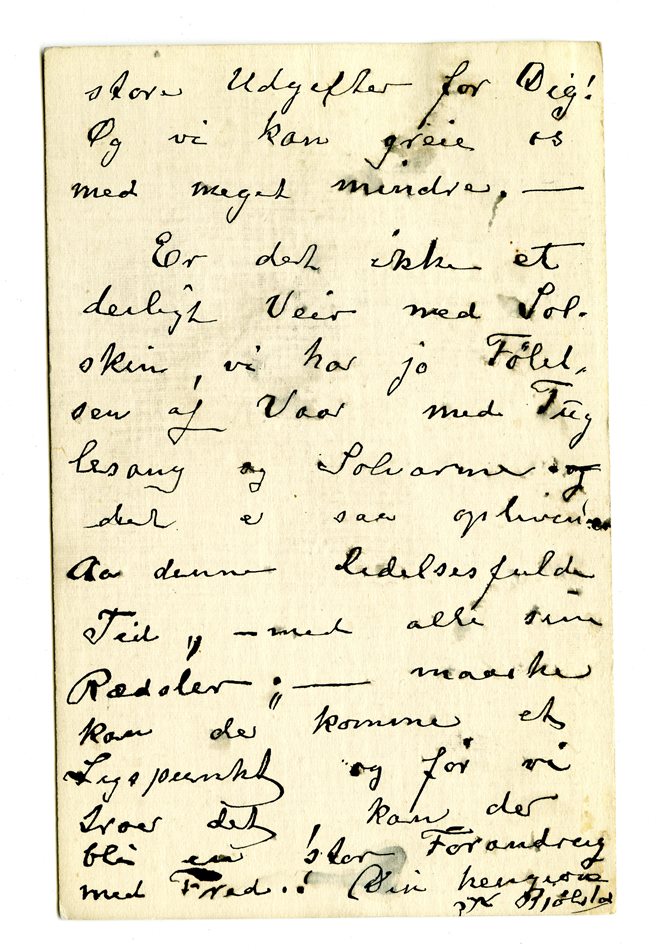 store Udgifter for Dig!
Og vi kan greie os
med meget mindre. —
Er det ikke et
deiligt Veir med Sol-
skin, vi har jo Følel-
sen af Vaar med Fug
lesang og Solvarme og
det e saa oplivende
Aa denne lidelsesfulde
Tid „ – med alle sine
Rædsler ; — maaske
kan de komme et
Lyspunkt og før vi
troer det, kan der
bli en stor Forandring
med Fred..! Din hengivne